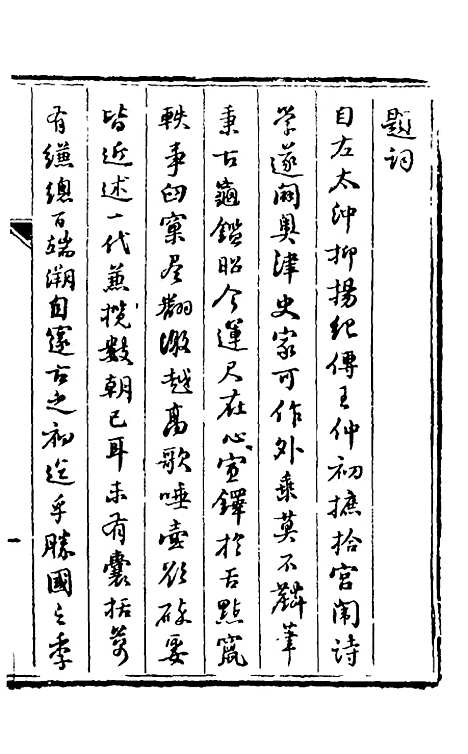 題詞
自左太沖抑揚紀傳王仲初摭拾宮闈詩
学遂闢奧津史家可作外乘莫不麟筆
秉古龜鑑昭今運尺在心宣鐸於舌點竄
軼事臼窠尽翻激越高歌唾壺欲碎要
皆近述一代兼攬數朝已耳未有囊括万
有繏總百端溯自邃古之初迄乎勝國之季
一